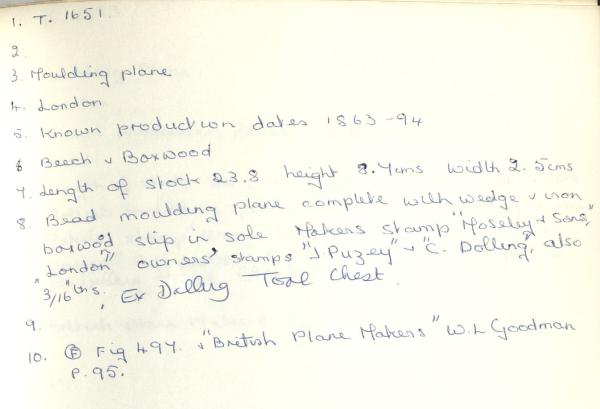 1. T. 1651.
2.
3. Moulding plane
4. London
5. Known production dates 1863-94
6 Beech & Boxwood
7. Length of stock 23.8 height 8.4cms width 2.5cms
8. Bead moulding plane complete with wedge & iron
boxwood slip in sole Makers stamp "Moseley & Sons",
"London" owners' stamps "J. Puzey" & "C. Dolling", also
"3/16" Ex Dolling Tool Chest.
9.
10. Ⓕ Fig 497. & "British Plane Makers" W.L Goodman
P.95.